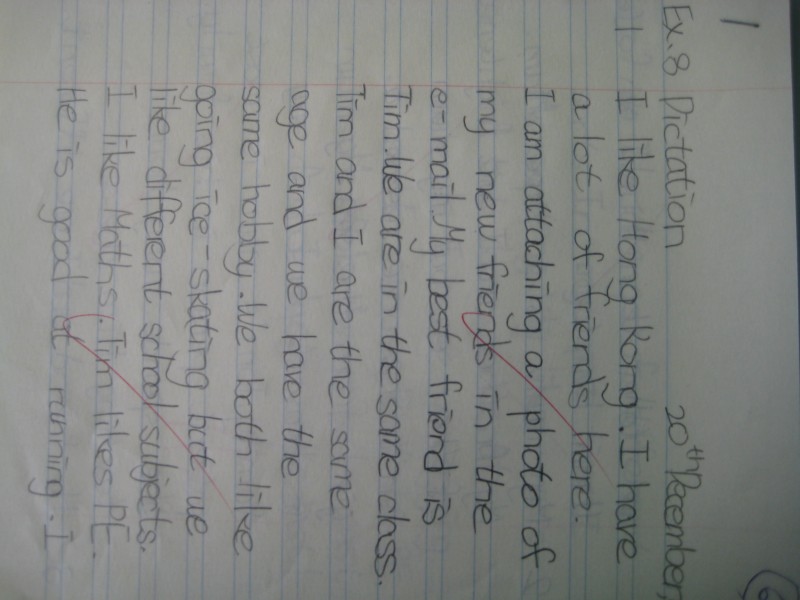 1
Ex. 8 Dictation 20th December,
1 I like Hong Kong. I have
a lot of friends here.
I am attaching a photo of
my new friends in the
e-mail. My best friend is
Tim. We are in the same class.
Tim and I are the same
age and we have the
same hobby. We both like
going ice-skating but we
like different school subjects.
I like Maths. Tim likes PE.
He is good at running. I